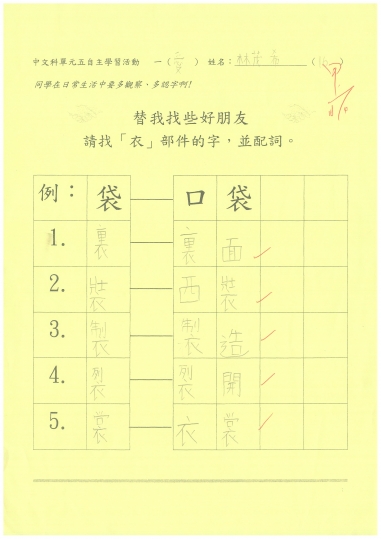 中文科單元五自主學習活動 一（愛） 姓名：林
同學在日常生活中要多觀察、多認字啊!
甲
替我找些好朋友
請找「衣」部件的字，並配詞。
例： 袋 口袋
1. 裏 裏面
2. 裝 西裝
3. 製 製造
4. 裂 裂開
5. 裳 衣裳